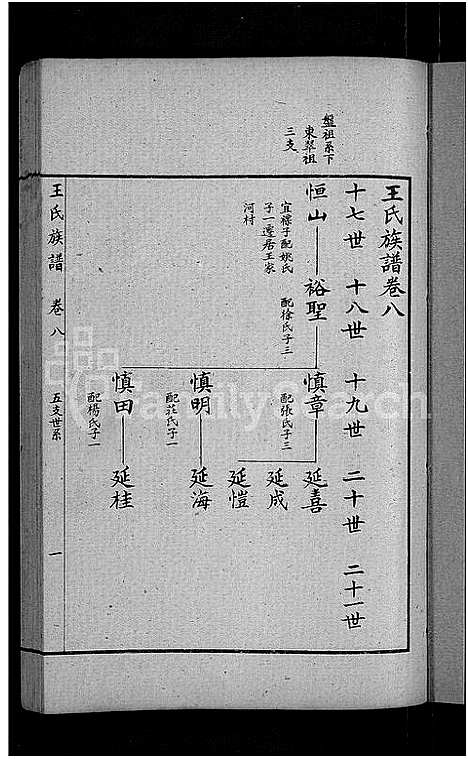 王氏族譜卷八
十七世 十八世 十九世 二十世 二十一世
盤祖系下
東翠祖
三支
恒山 裕聖 慎章 延喜
宜標子配姚氏
子一遷居王家
河村
配徐氏子三
配張氏子三
延成
延愷
慎明 延海
配莊氏子一
慎田 延桂
配楊氏子一
王氏族譜 卷八 五支世系 一
FamilySearch